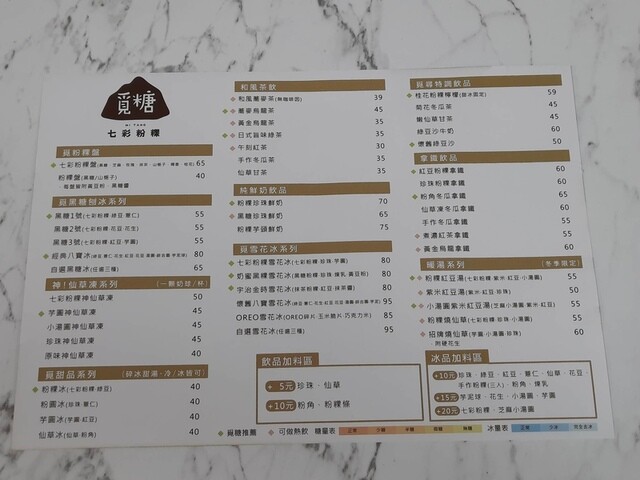 覓糖
MI TANG
七彩粉粿
覓粉粿盤
七彩粉粿盤 65
粉粿盤(黑糖/山梔子) 40
每盤皆附黃豆粉、黑糖醬
覓黑糖刨冰系列
黑糖1號(七彩粉粿·綠豆·薏仁) 55
黑糖2號(七彩粉粿·花豆·花生) 55
黑糖3號(七彩粉粿·紅豆·芋圓) 55
經典八寶冰 80
自選黑糖冰(任選三種) 65
神!仙草凍系列 (一顆奶球/杯)
七彩粉粿神仙草凍 50
芋圓神仙草凍 45
小湯圓神仙草凍 45
珍珠神仙草凍 45
原味神仙草凍 40
覓甜品系列 (碎冰甜湯·冷/冰皆可)
粉粿冰(七彩粉粿·綠豆) 40
粉圓冰(珍珠·薏仁) 40
芋圓冰(芋圓·紅豆) 40
仙草冰(仙草·粉角) 40
和風茶飲
和風蕎麥茶(無糖微甜) 39
蕎麥烏龍茶 45
黃金烏龍茶 35
日式旨味綠茶 35
午刻紅茶 30
手作冬瓜茶 35
仙草甘茶 35
純鮮奶飲品
粉粿珍珠鮮奶 70
黑糖珍珠鮮奶 65
粉粿芋頭鮮奶 75
覓雪花冰系列
七彩粉粿雪花冰(七彩粉粿·珍珠·芋圓) 80
奶蜜黑糖雪花冰(黑糖粉粿·珍珠·煉乳·黃豆粉) 80
宇治金時雪花冰(抹茶粉粿·紅豆·抹茶醬) 80
懷舊八寶雪花冰 95
OREO雪花冰(OREO碎片·玉米脆片·巧克力米) 85
自選雪花冰(任選三種) 95
飲品加料區
+ 5元 珍珠、仙草
+10元 粉角、粉粿條
覓糖推薦 可做熱飲 糖量表 正常 少糖 半糖 微糖 無糖 冰量表 正常 少冰 完全去冰
覓尋特調飲品
桂花粉粿檸檬(甜冰固定) 59
荷花冬瓜茶 45
嫩仙草甘茶 45
綠豆沙牛奶 60
懷舊綠豆沙 50
拿鐵飲品
紅豆粉粿拿鐵 60
珍珠粉粿拿鐵 60
粉角冬瓜拿鐵 65
仙草凍冬瓜拿鐵 60
手作冬瓜拿鐵 55
煮濃紅茶拿鐵 55
黃金烏龍拿鐵 60
暖湯系列 (冬季限定)
粉粿紅豆湯(七彩粉粿·紫米·紅豆·小湯圓) 55
紫米紅豆湯 50
小湯圓紫米紅豆湯(芝麻小湯圓·紫米·紅豆) 55
粉粿燒仙草(七彩粉粿·珍珠·小湯圓) 55
招牌燒仙草(芋圓·小湯圓·珍珠) 60
附硬花生
冰品加料區
+10元 珍珠、綠豆、紅豆、薏仁、仙草、花豆、
手作粉粿(三入)、粉角、煉乳
+15元 芋泥球、花生、小湯圓、芋圓
+20元 七彩粉粿、芝麻小湯圓